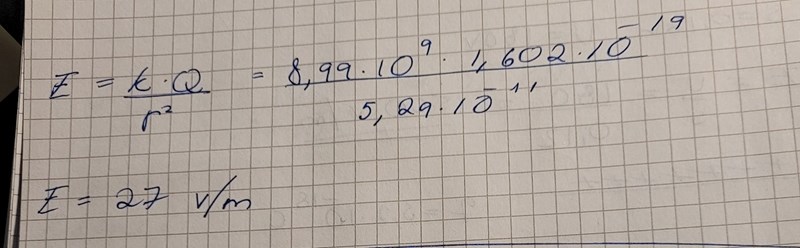 E = k · Q / r² = 8,99 · 10⁹ · 1,602 · 10⁻¹⁹ / 5,29 · 10⁻¹¹
E = 27 V/m